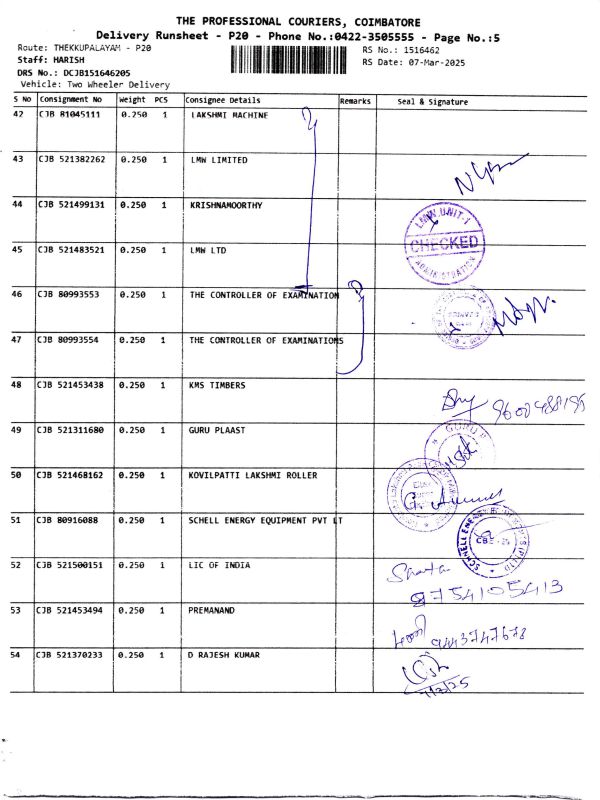 THE PROFESSIONAL COURIERS, COIMBATORE
Delivery Runsheet - P20 - Phone No.:0422-3505555 - Page No.:5
Route: THEKKUPALAYAM - P20
RS No.: 1516462
Staff: HARISH
RS Date: 07-Mar-2025
DRS No.: DCJB151646205
Vehicle: Two Wheeler Delivery
S No Consignment No Weight PCS Consignee Details Remarks Seal & Signature
42 CJB 81045111 0.250 1 LAKSHMI MACHINE
43 CJB 521382262 0.250 1 LMW LIMITED
44 CJB 521499131 0.250 1 KRISHNAMOORTHY
LMW UNIT-1
CHECKED
45 CJB 521483521 0.250 1 LMW LTD
46 CJB 80993553 0.250 1 THE CONTROLLER OF EXAMINATION
47 CJB 80993554 0.250 1 THE CONTROLLER OF EXAMINATIONS
48 CJB 521453438 0.250 1 KMS TIMBERS
49 CJB 521311680 0.250 1 GURU PLAAST
50 CJB 521468162 0.250 1 KOVILPATTI LAKSHMI ROLLER
51 CJB 80916088 0.250 1 SCHELL ENERGY EQUIPMENT PVT LT
52 CJB 521500151 0.250 1 LIC OF INDIA
8754105413
53 CJB 521453494 0.250 1 PREMANAND
9443747678
54 CJB 521370233 0.250 1 D RAJESH KUMAR